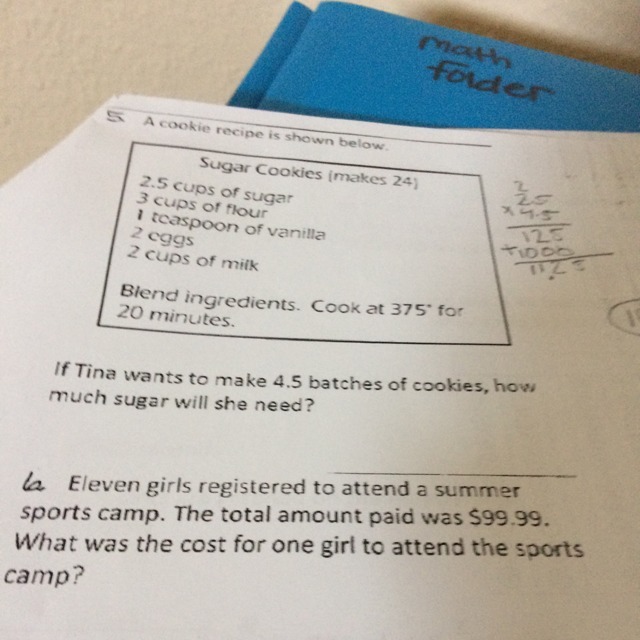 math
folder
5. A cookie recipe is shown below.
Sugar Cookies (makes 24)
2.5 cups of sugar
3 cups of flour
1 teaspoon of vanilla
2 eggs
2 cups of milk
Blend ingredients. Cook at 375° for
20 minutes.
2
25
x 4.5
125
+1000
112.5
If Tina wants to make 4.5 batches of cookies, how
much sugar will she need?
6 Eleven girls registered to attend a summer
sports camp. The total amount paid was $99.99.
What was the cost for one girl to attend the sports
camp?